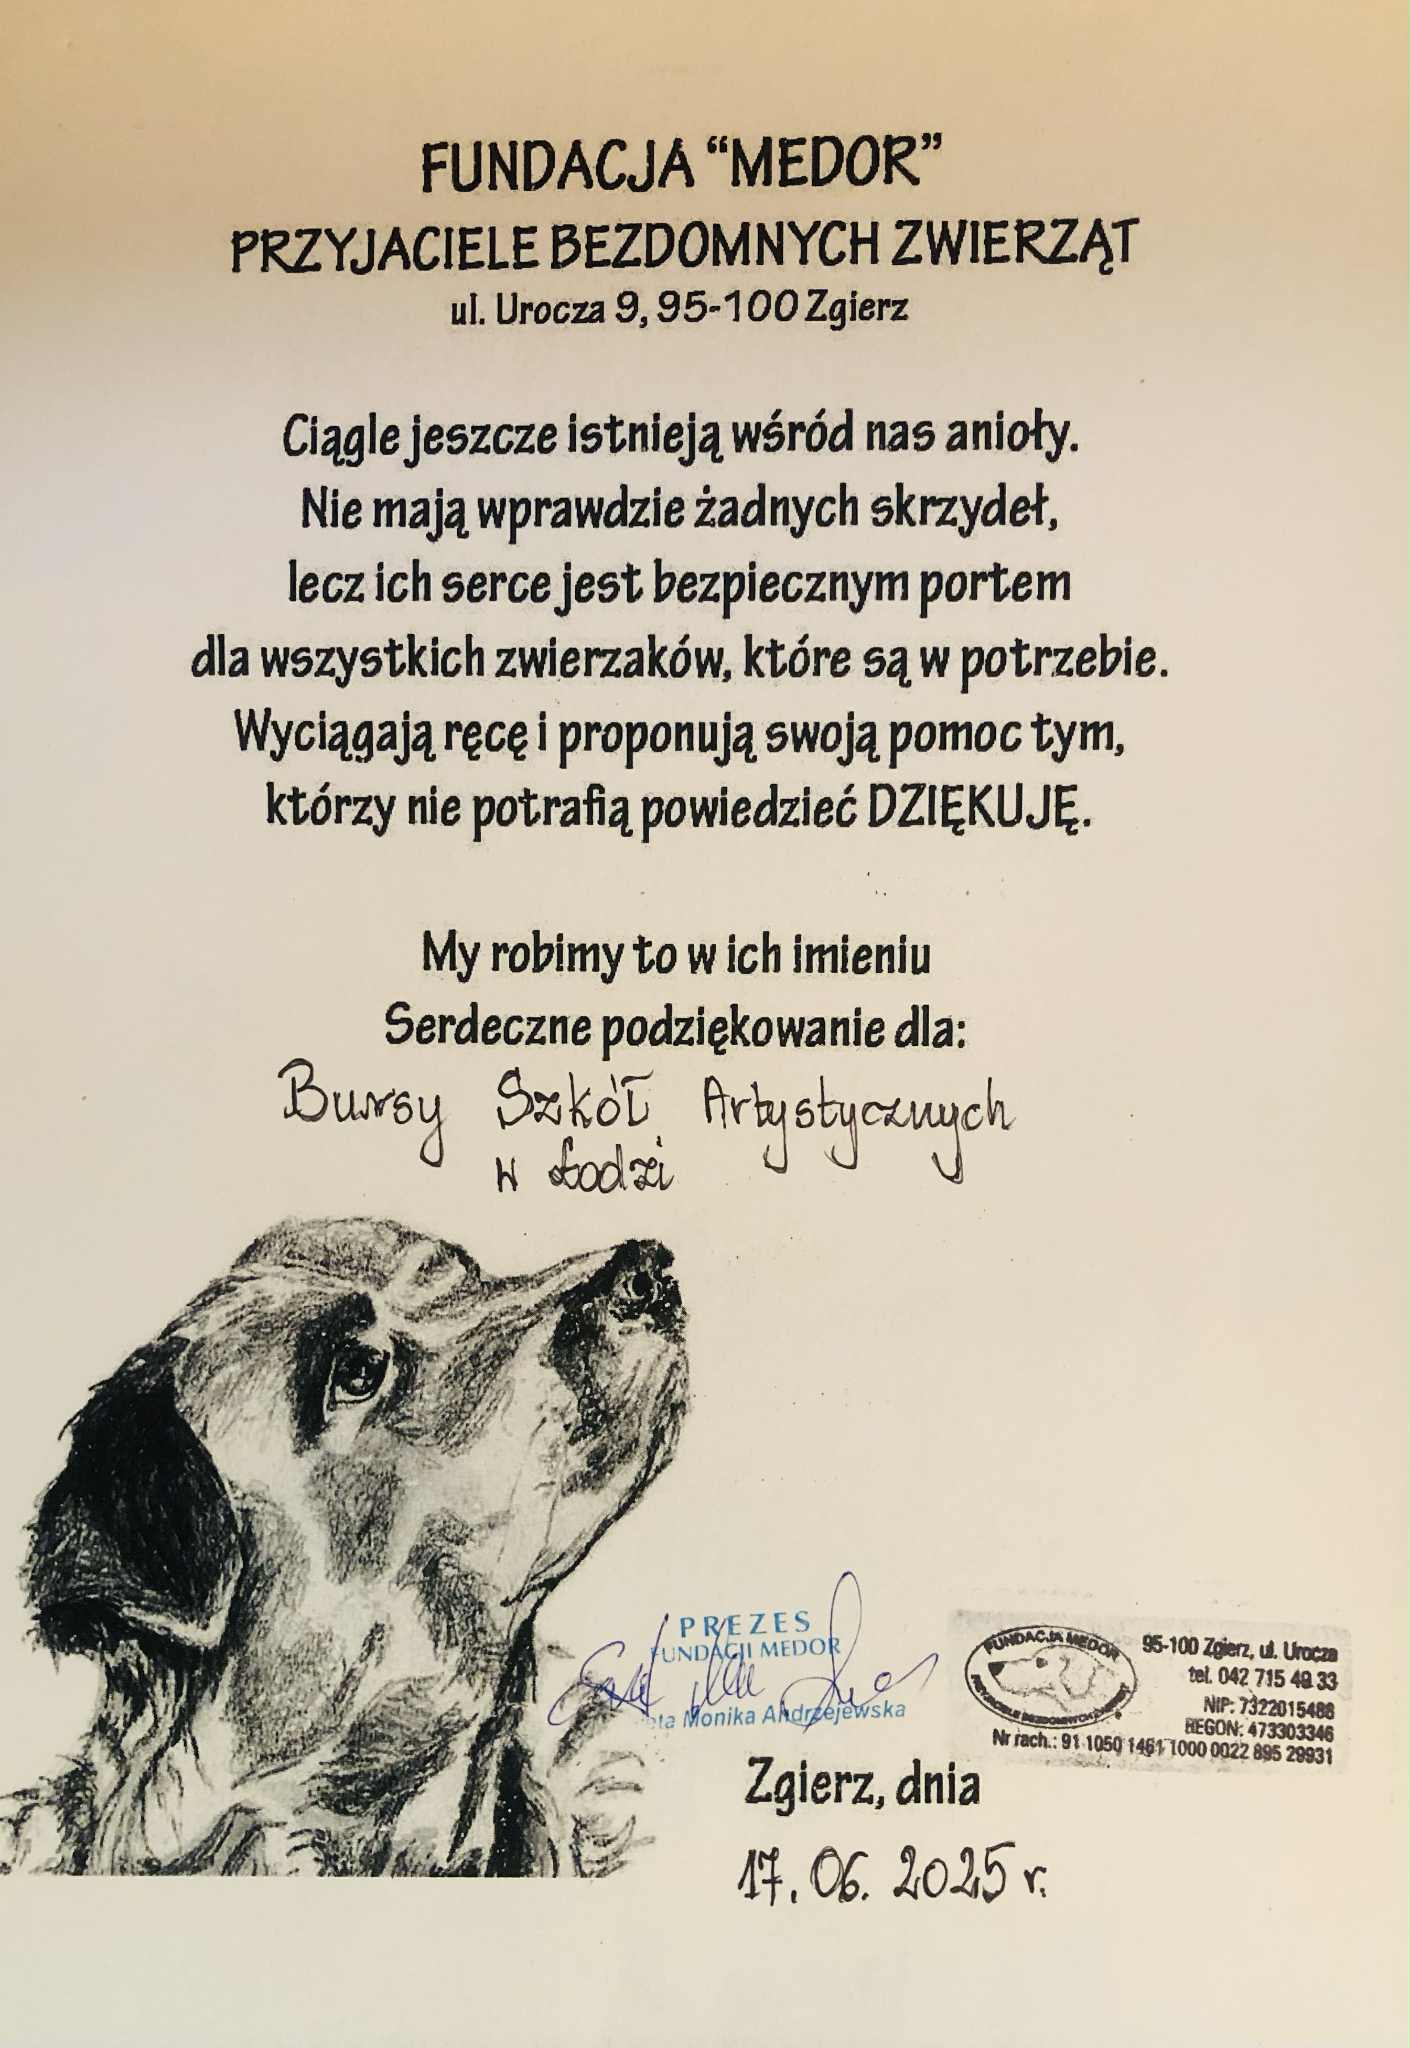 FUNDACJA “MEDOR”
PRZYJACIELE BEZDOMNYCH ZWIERZĄT
ul. Urocza 9, 95-100 Zgierz
Ciągle jeszcze istnieją wśród nas anioły.
Nie mają wprawdzie żadnych skrzydeł,
lecz ich serce jest bezpiecznym portem
dla wszystkich zwierzaków, które są w potrzebie.
Wyciągają ręcę i proponują swoją pomoc tym,
którzy nie potrafią powiedzieć DZIĘKUJĘ.
My robimy to w ich imieniu
Serdeczne podziękowanie dla:
Bursy Szkół Artystycznych
w Łodzi
PREZES
FUNDACJI MEDOR
Monika Andrzejewska
FUNDACJA MEDOR
PRZYJACIELE BEZDOMNYCH ZWIERZĄT
95-100 Zgierz, ul. Urocza
tel. 042 715 49 33
NIP: 7322015486
REGON: 473303346
Nr rach.: 91 1050 1461 1000 0022 895 29931
Zgierz, dnia
17.06.2025 r.